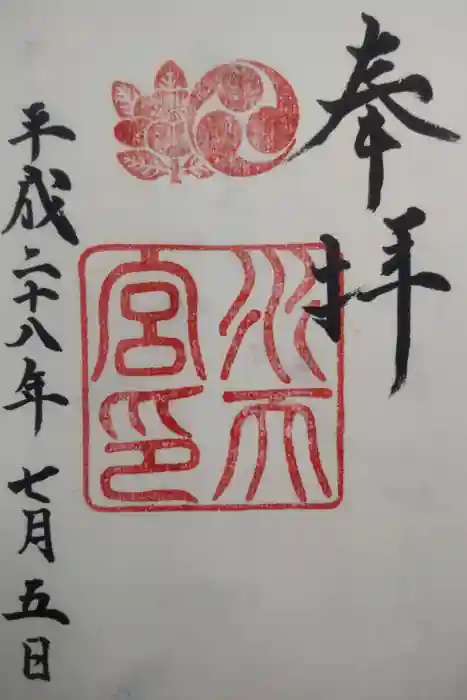 奉拝
水天宮印
平成二十八年七月五日